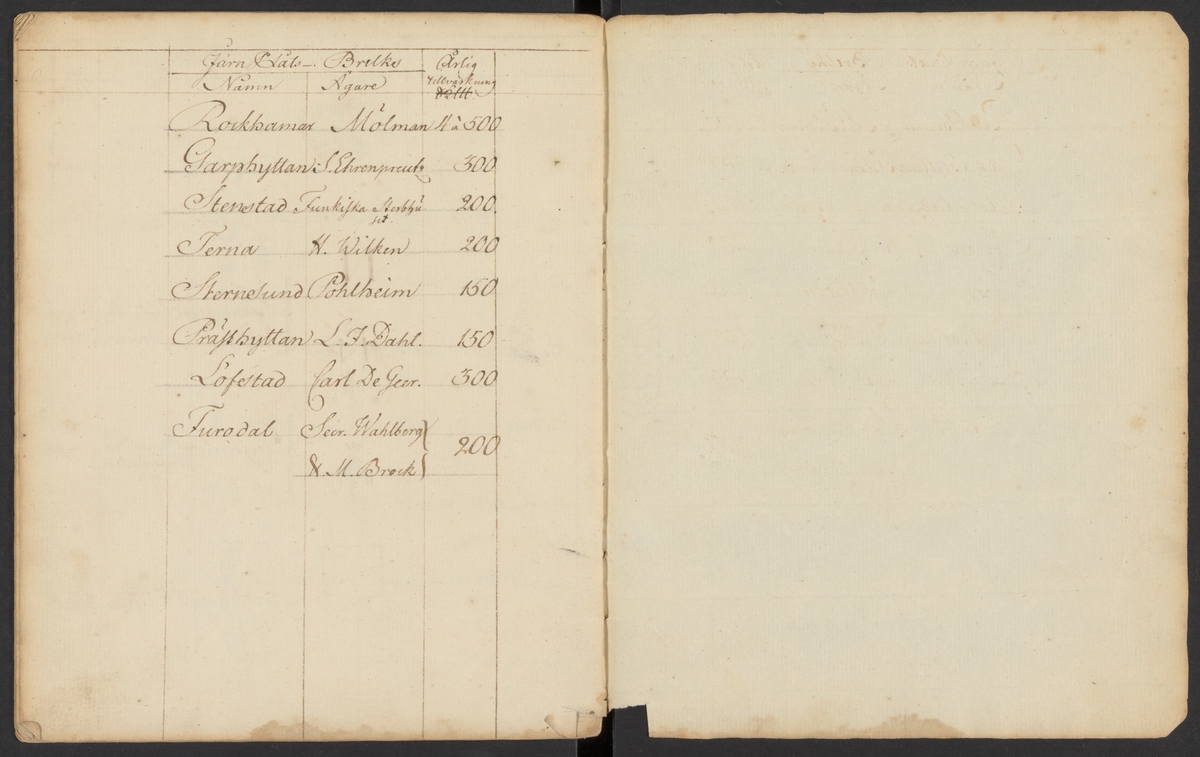 Järn Plåts-. Brelkes Årlig
Namn Ägare tillvärkning
Rockhamar Mölman 4 à 500
Garphyttan S. Ehrenpreutz 300
Stenstad Funkiska Sterbhu 200.
set
Terna H. Wilken 200
Sternesund Pohlheim 150
Prästhyttan L. J. Dahl. 150
Löfstad Carl De Geer. 300
Furodal Secr. Wahlberg
200
& M. Brock